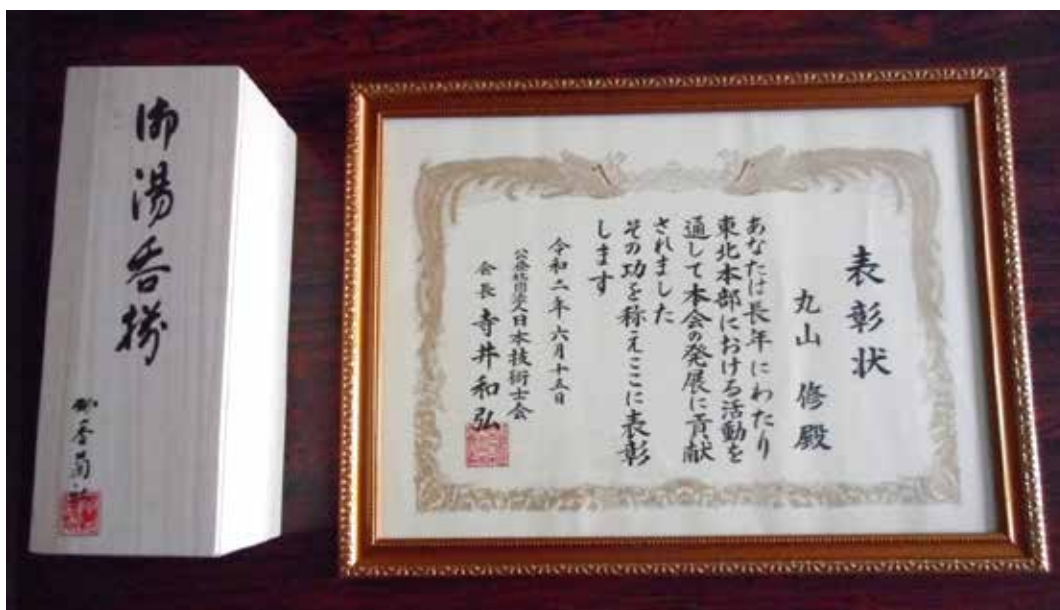 表彰状
丸山 修殿
あなたは長年にわたり
東北本部における活動を
通して本会の発展に貢献
されました
その功を称えここに表彰
します
令和二年六月十五日
公益社団法人日本技術士会
会長 寺井和弘
御湯呑揃